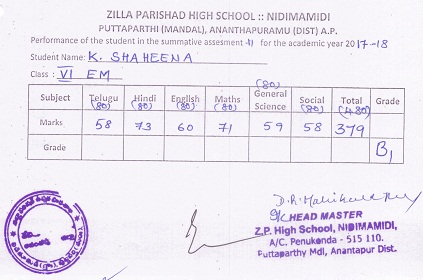 ZILLA PARISHAD HIGH SCHOOL :: NIDIMAMIDI
PUTTAPARTHI (MANDAL), ANANTHAPURAMU (DIST) A.P.
Performance of the student in the summative assesment -II for the academic year 2017-18
Student Name: K. SHAHEENA
Class : VI EM
Subject Telugu (80) Hindi (80) English (80) Maths (80) General Science (80) Social (80) Total (480) Grade
Marks 58 73 60 71 59 58 379
Grade B1
HEAD MASTER
Z.P. High School, NIDIMAMIDI,
A/C. Penukonda - 515 110.
Puttaparthy Mdl, Anantapur Dist.